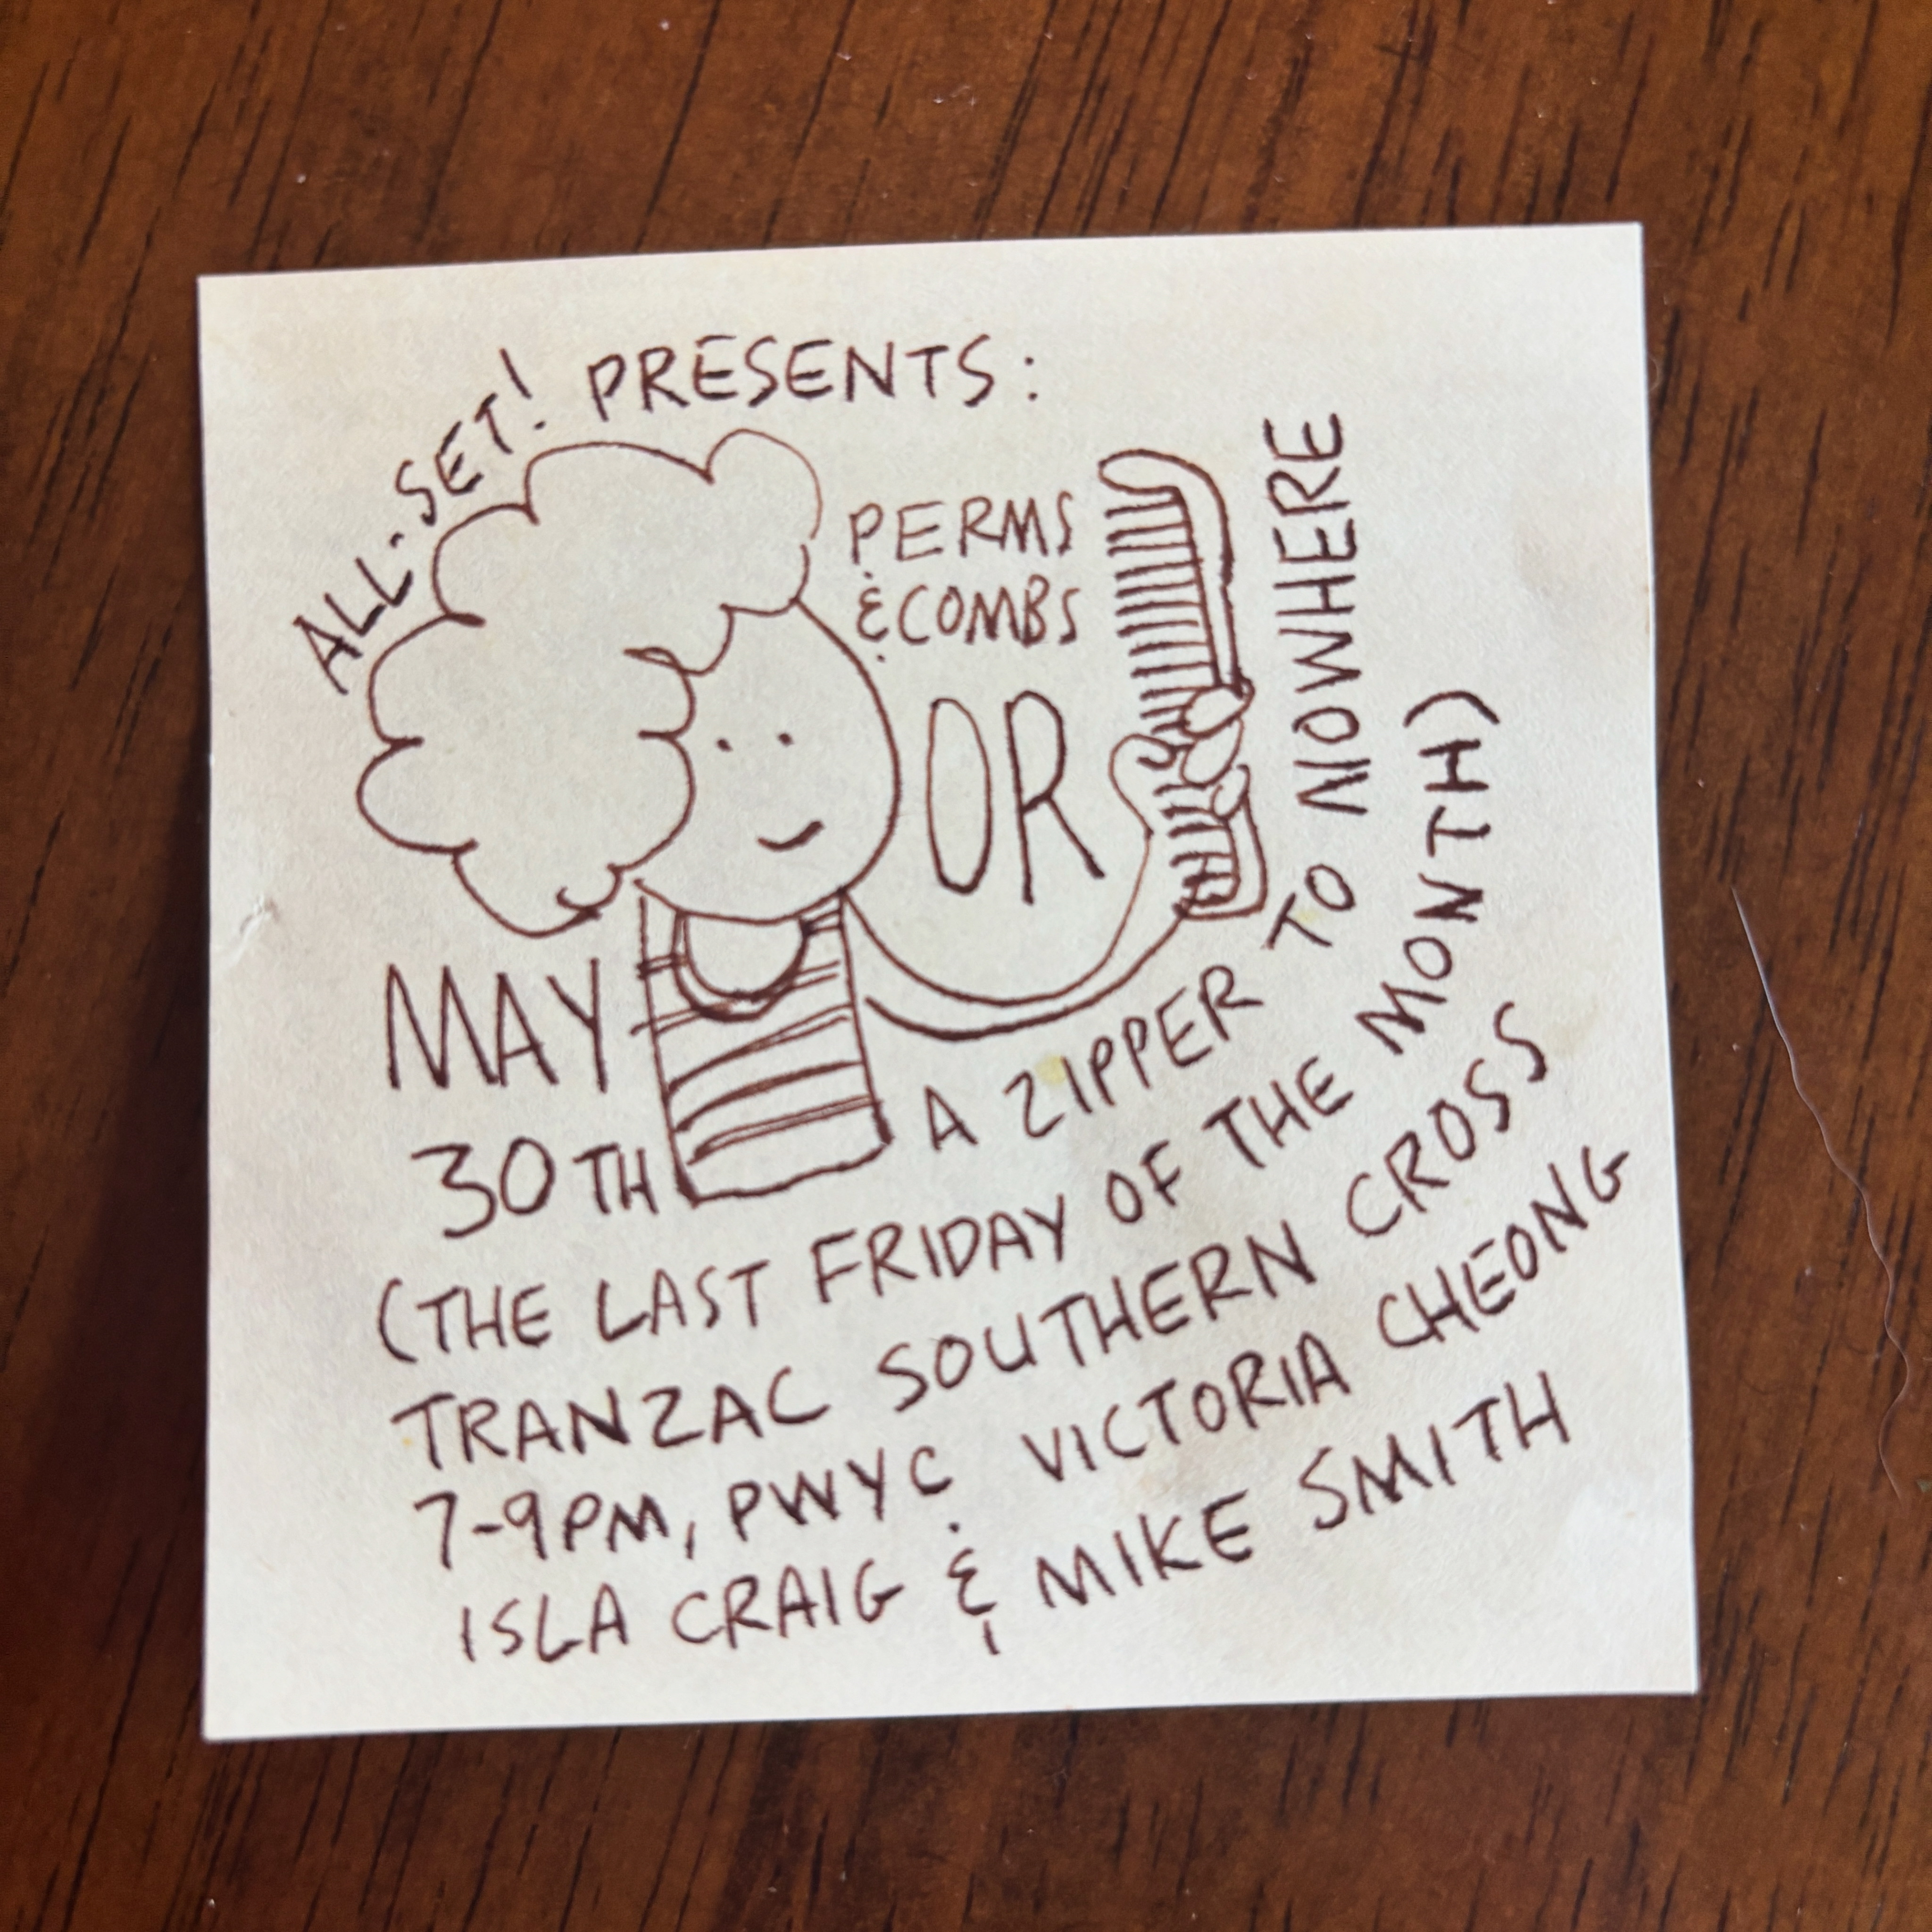 ALL-SET! PRESENTS:
PERMS
& COMBS
OR
A ZIPPER TO NOWHERE
MAY
30TH
(THE LAST FRIDAY OF THE MONTH)
TRANZAC SOUTHERN CROSS
7-9PM, PWYC VICTORIA CHEONG
ISLA CRAIG & MIKE SMITH